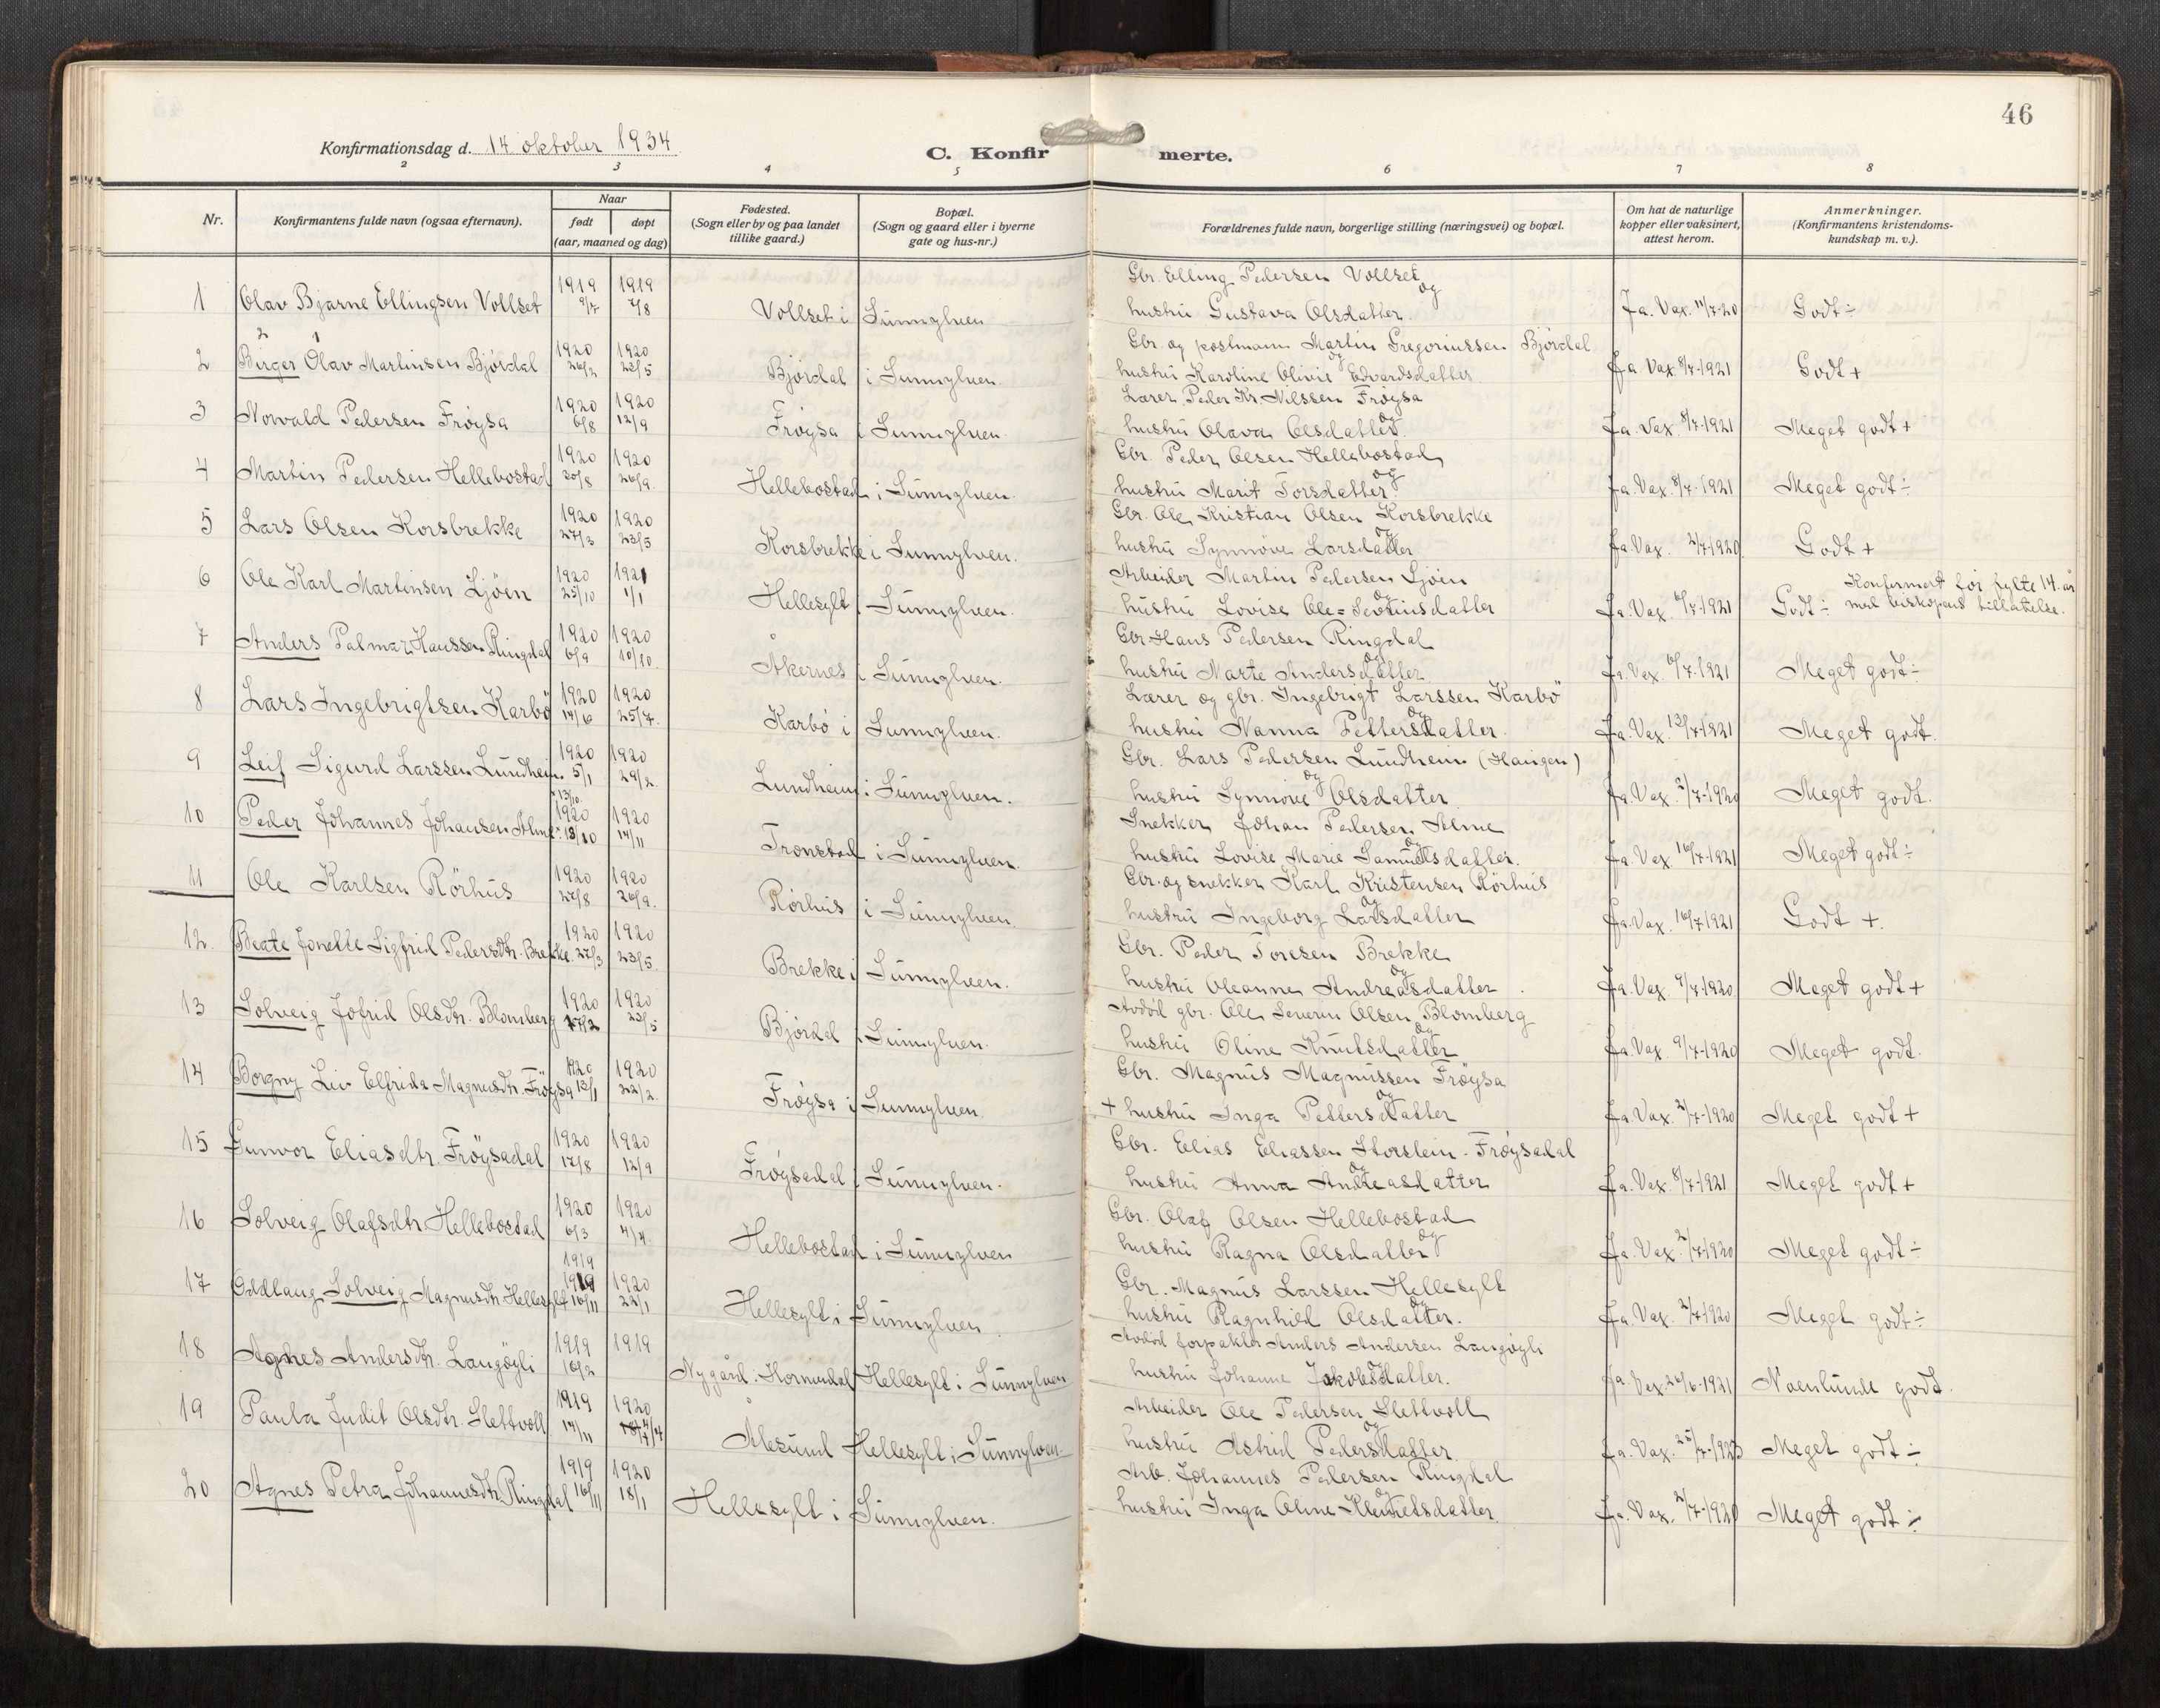 46
Konfirmationsdag d. 14 oktober 1934
C. Konfirmerte.
2 3 4 5 6 7 8
Nr.
Konfirmantens fulde navn (ogsaa efternavn).
Naar
født døpt
(aar, maaned og dag)
Fødested.
(Sogn eller by og paa landet
tillike gaard.)
Bopæl.
(Sogn og gaard eller i byerne
gate og hus-nr.)
Forældrenes fulde navn, borgerlige stilling (næringsvei) og bopæl.
Om hat de naturlige
kopper eller vaksinert,
attest herom.
Anmerkninger.
(Konfirmantens kristendoms-
kundskap m. v.).
1919 1919 Gbr. Elling Pedersen Vollset og
1 Olav Bjarne Ellingsen Vollset 9/7 7/8 Vollset i Sunnylven hustru Gustava Olsdatter. Ja. Vax. 11/7-20 Godt ÷
2 1
1920 1920 Gbr. og postmann Martin Gregoriussen Bjørdal og
2 Birger Olav Martinsen Bjørdal 26/2 23/5 Bjørdal i Sunnylven. hustru Karoline Olivie Edvardsdatter Ja. Vax. 8/7-1921 Godt +
1920 1920 Lærer Peder Kr. Nilssen Frøysa og
3 Norvald Pedersen Frøysa 6/8 12/9 Frøysa i Sunnylven. hustru Olava Olsdatter. Ja. Vax. 8/7-1921 Meget godt +
1920 1920 Gbr. Peder Olsen Hellebostad og
4 Martin Pedersen Hellebostad 20/8 26/9 Hellebostad i Sunnylven. hustru Marit Torsdatter. Ja. Vax. 8/7-1921 Meget godt ÷
1920 1920 Gbr. Ole Kristian Olsen Korsbrekke og
5 Lars Olsen Korsbrekke 27/3 23/5 Korsbrekke i Sunnylven. hustru Synnøve Larsdatter Ja. Vax. 2/7-1920 Godt +
1920 1921 Arbeider Martin Pedersen Ljøen og Konfirmert før fylte 14. år
6 Ole Karl Martinsen Ljöen 25/10 1/1 Hellesylt i Sunnylven. hustru Lovise Ole-Severinsdatter Ja. Vax. 6/7-1921 Godt ÷ med biskopens tillatelse.
1920 1920 Gbr. Hans Pedersen Ringdal og
7 Anders Palmar Hanssen Ringdal 6/9 10/10. Åkernes i Sunnylven. hustru Marte Andersdatter. Ja. Vax. 6/7-1921 Meget godt ÷
1920 1920 Lærer og gbr. Ingebrigt Larssen Karbö og
8 Lars Ingebrigtsen Karbö 14/6 25/7. Karbö i Sunnylven. hustru Nanna Pettersdatter. Ja. Vax. 13/7-1921 Meget godt.
1920 1920 Gbr. Lars Pedersen Lundheim (Haugen) og
9 Leif Sigurd Larssen Lundheim. 5/1 29/2. Lundheim i Sunnylven. hustru Synnøve Olsdatter. Ja. Vax. 2/7-1920 Meget godt.
13/10.
1920 1920 Snekker Johan Pedersen Alme og
10 Peder Johannes Johansen Alme 18/10 14/11 Tronstad i Sunnylven. hustru Lovise Marie Samuelsdatter. Ja. Vax. 16/7-1921 Meget godt ÷
1920 1920 Gbr. og snekker Karl Kristensen Rörhus og
11 Ole Karlsen Rörhus 27/8 26/9. Rörhus i Sunnylven. hustru Ingeborg Larsdatter Ja. Vax. 16/7-1921 Godt +.
1920 1920 Gbr. Peder Toresen Brekke og
12. Beate Jonette Sigfrid Pedersdtr. Brekke. 27/3 23/5. Brekke i Sunnylven. hustru Oleanne Andreasdatter. Ja. Vax. 9/7-1920 Meget godt +
1920 1920 Avdød gbr. Ole Severin Olsen Blomberg og
13 Solveig Jofrid Olsdtr. Blomberg 17/2 23/5 Bjørdal i Sunnylven. hustru Oline Knutsdatter Ja. Vax. 9/7-1920 Meget godt.
1920 1920 Gbr. Magnus Magnussen Frøysa og
14 Borgny Liv Elfrida Magnusdtr. Frøysa 13/1 22/2. Frøysa i Sunnylven. + hustru Inga Pettersdatter Ja. Vax. 2/7-1920 Meget godt +
1920 1920 Gbr. Elias Eliassen Storstein-Frøysadal og
15 Gunvor Eliasdtr. Frøysadal 17/8 12/9 Frøysadal i Sunnylven. hustru Anna Andreasdatter Ja. Vax. 8/7-1921 Meget godt +
1920 1920 Gbr. Olaf Olsen Hellebostad og
16 Solveig Olafsdtr. Hellebostad 6/3 4/4. Hellebostad i Sunnylven hustru Ragna Olsdatter Ja. Vax. 2/7-1920 Meget godt ÷
1919
1919 1920 Gbr. Magnus Larssen Hellesylt og
17 Oddlaug Solveig Magnusdtr. Hellesylt 16/11 22/1 Hellesylt i Sunnylven. hustru Ragnhild Olsdatter. Ja. Vax. 2/7-1920 Meget godt ÷
1919 1919 Avdød forpakter Anders Andersen Langøgli og
18 Agnes Andersdtr. Langøgli 16/2 Nygård i Hornindal Hellesylt i Sunnylven hustru Johanne Jakobsdatter. Ja. Vax. 26/6-1921 Noenlunde godt.
1919 1920 Arbeider Ole Pedersen Slettvoll og
19 Paula Judit Olsdtr. Slettvoll 14/11 4/4 Ålesund Hellesylt i Sunnylven hustru Astrid Pedersdatter. Ja. Vax. 25/7-1923 Meget godt ÷
1919 1920 Arb. Johannes Pedersen Ringdal og
20 Agnes Petra Johannesdtr. Ringdal 16/11 18/1 Hellesylt i Sunnylven. hustru Inga Oline Klemetsdatter. Ja. Vax. 2/7-1920 Meget godt ÷